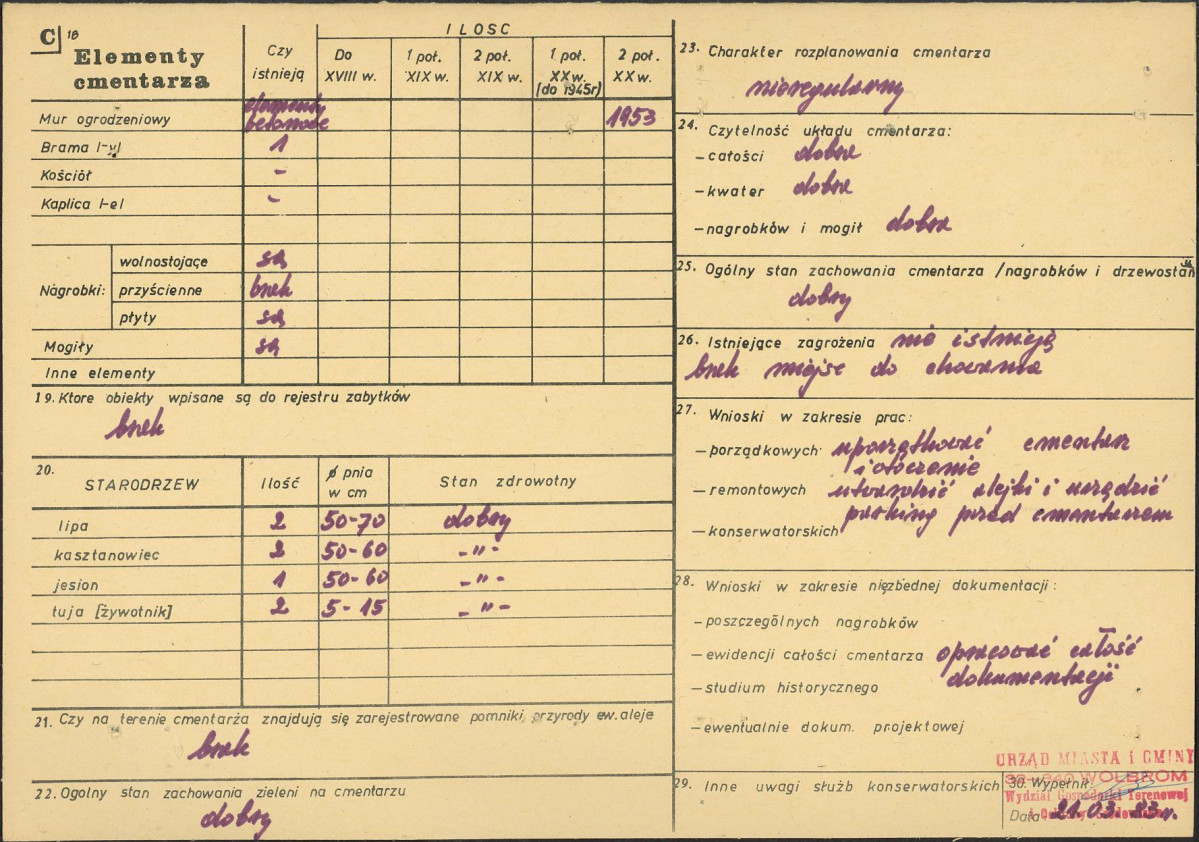 C 18
Elementy cmentarza
Czy istnieją
ILOSC
Do XVIII w.
1 poł. XIX w.
2 poł. XIX w.
1 poł. XX w. (do 1945r)
2 poł. XX w.
Mur ogrodzeniowy elementy betonowe 1953
Brama 1-y/ 1
Kościół -
Kaplica 1-e/ -
Nagrobki:
wolnostojące są
przyścienne brak
płyty są
Mogiły są
Inne elementy
19. Ktore obiekty wpisane są do rejestru zabytków
brak
20. STARODRZEW Ilość ø pnia w cm Stan zdrowotny
lipa 2 50-70 dobry
kasztanowiec 2 50-60 -"-
jesion 1 50-60 -"-
tuja [żywotnik] 2 5-15 -"-
21. Czy na terenie cmentarża znajdują się zarejestrowane pomniki przyrody ew. aleje
brak
22. Ogolny stan zachowania zieleni na cmentarzu
dobry
23. Charakter rozplanowania cmentarza
nieregularny
24. Czytelność układu cmentarza:
-całości dobre
-kwater dobre
-nagrobków i mogił dobre
25. Ogólny stan zachowania cmentarza /nagrobków i drzewostan
dobry
26. Istniejące zagrożenia nie istnieją
brak miejsc do chowania
27. Wnioski w zakresie prac:
-porządkowych uporządkować cmentarz
i otoczenie
-remontowych utwardzić alejki i urządzić
parking przed cmentarzem
-konserwatorskich
28. Wnioski w zakresie niezbędnej dokumentacji:
-poszczególnych nagrobków
-ewidencji całości cmentarza opracować całość
dokumentacji
-studium historycznego
-ewentualnie dokum. projektowej
29. Inne uwagi służb konserwatorskich
30. Wypełnił
URZĄD MIASTA i GMINY
32-340 WOLBROM
Wydział Gospodarki Terenowej
Data 21.03.83 r.